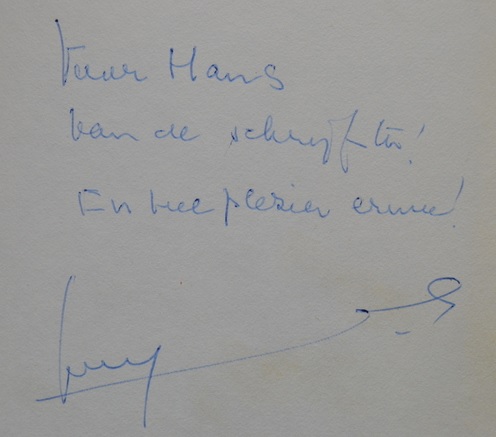 Voor Hans
van de schrijfster!
En veel plezier ermee!